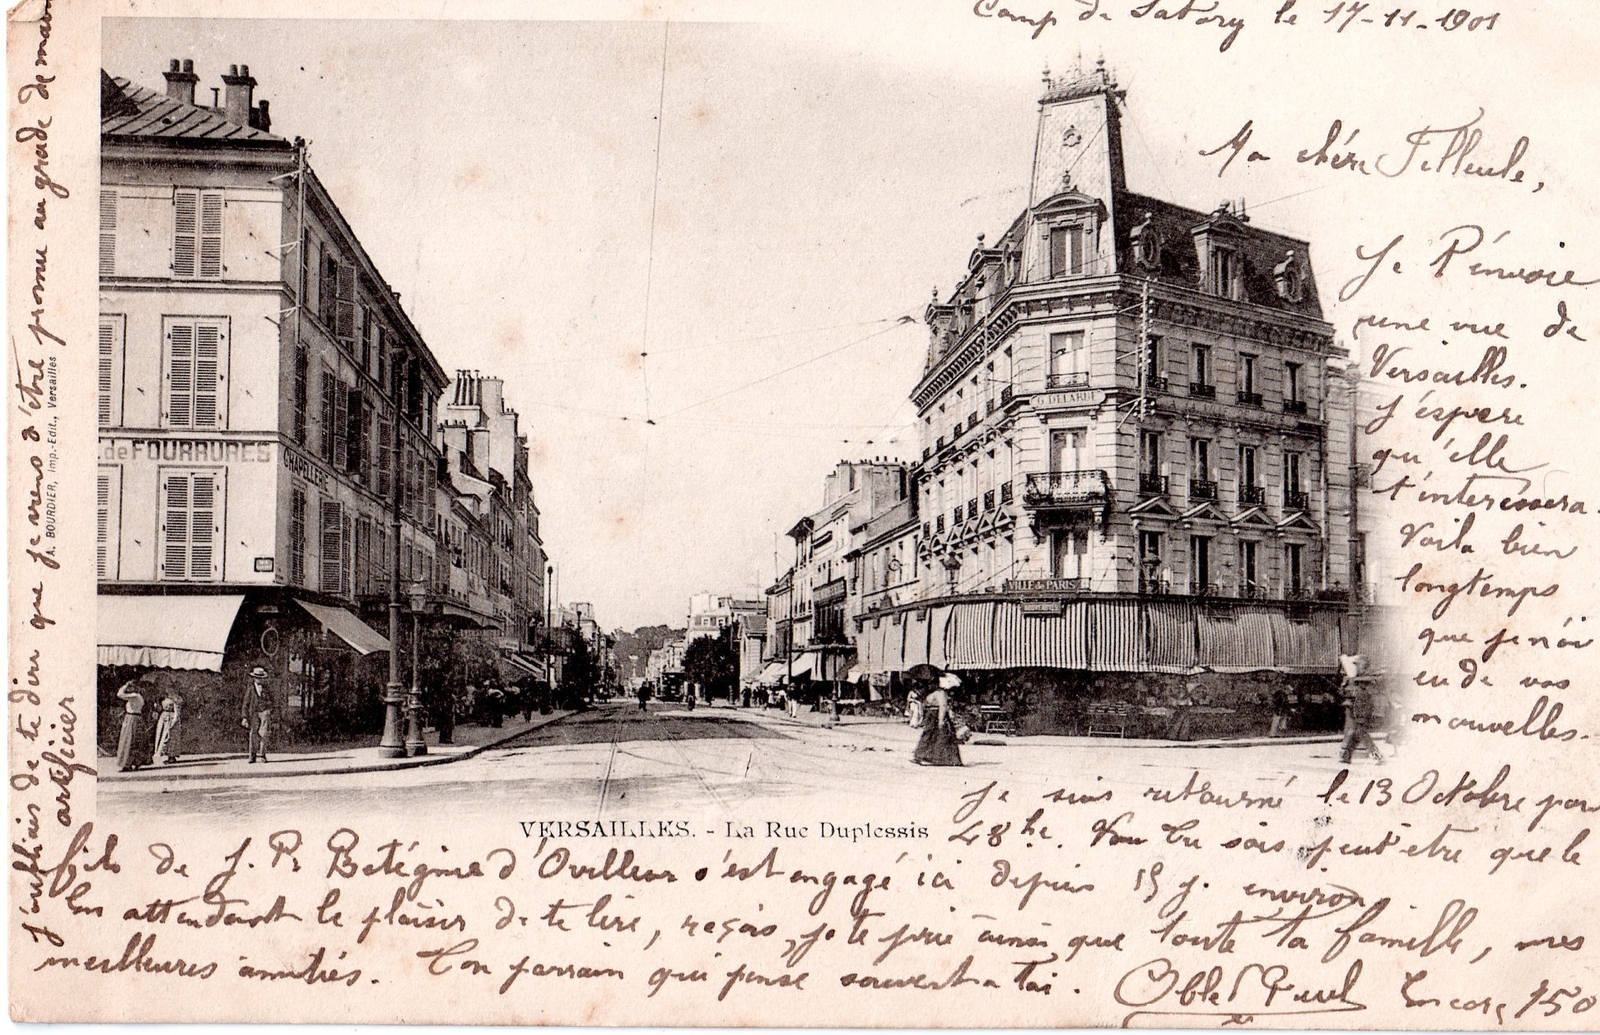 Camp de Satory le 17-11-1901
Ma chère Filleule,
Je t'envoie
une vue de
Versailles.
J'espère
qu'elle
t'interessera.
Voila bien
longtemps
que je n'ai
eu de vos
nouvelles.
Je suis retourné le 13 Octobre pour
48 he. Tu sais peut être que le
fils de J. B. d'Ovillers s'est engagé ici depuis 15 j. environ
En attendant le plaisir de te lire, reçois, je te prie ainsi que toute ta famille, mes
meilleures amitiés. Ton parrain qui pense souvent a toi.
Encore 150
J'oubliais de te dire que je viens d'être promu au grade de
artificier
A. BOURDIER, Imp.-Edit., Versailles
de FOURRURES
CHAPELLERIE
G. DELARUE
VILLE DE PARIS
NOUVEAUTES
VERSAILLES. - La Rue Duplessis